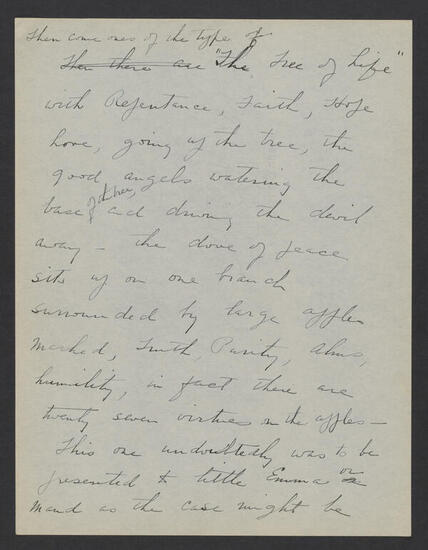 Then come ones of the type of
Then there are "The Tree of Life"
with Repentance, Faith, Hope
Love, going up the tree, the
good angels watering the
base of the tree, and driving the devil
away — the dove of peace
sits up on one branch
surrounded by large apples
marked, Truth, Purity, Alms,
humility, in fact there are
twenty seven virtues on the apples —
This one undoubtedly was to be
presented to little Emma or
Maud as the case might be